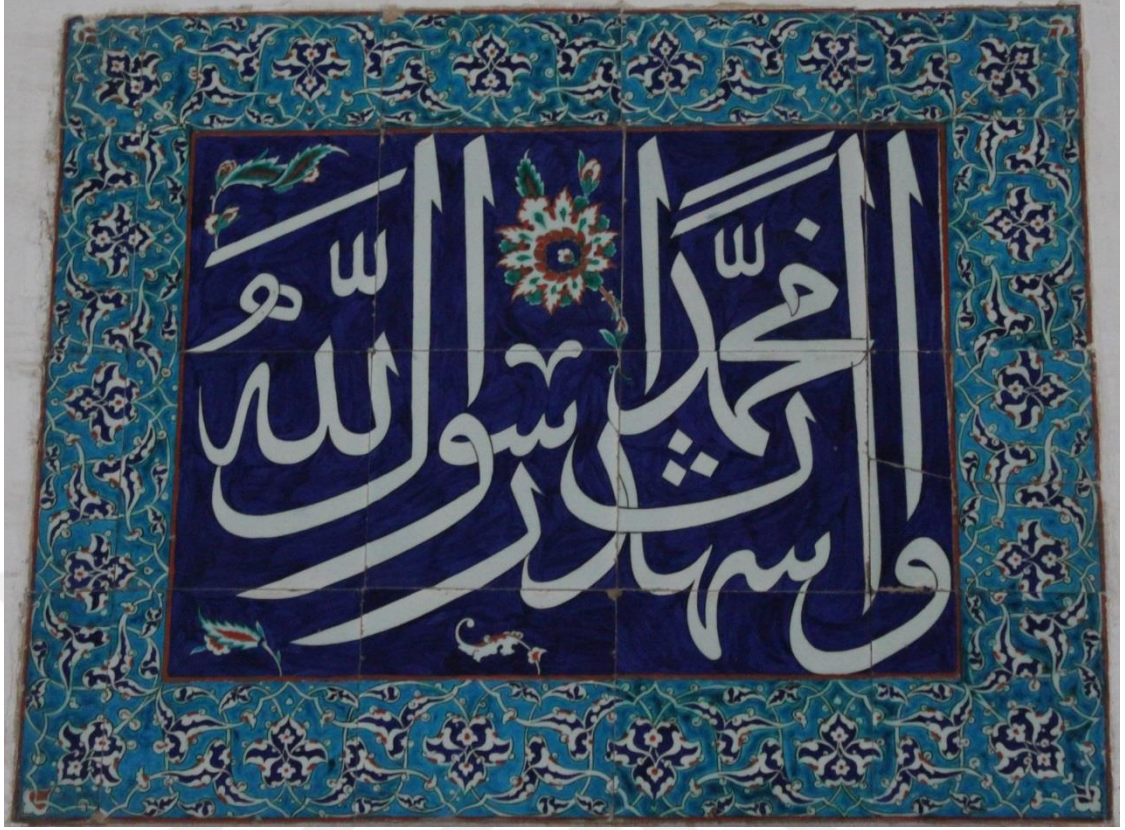 واشهد ان محمدا رسول الله